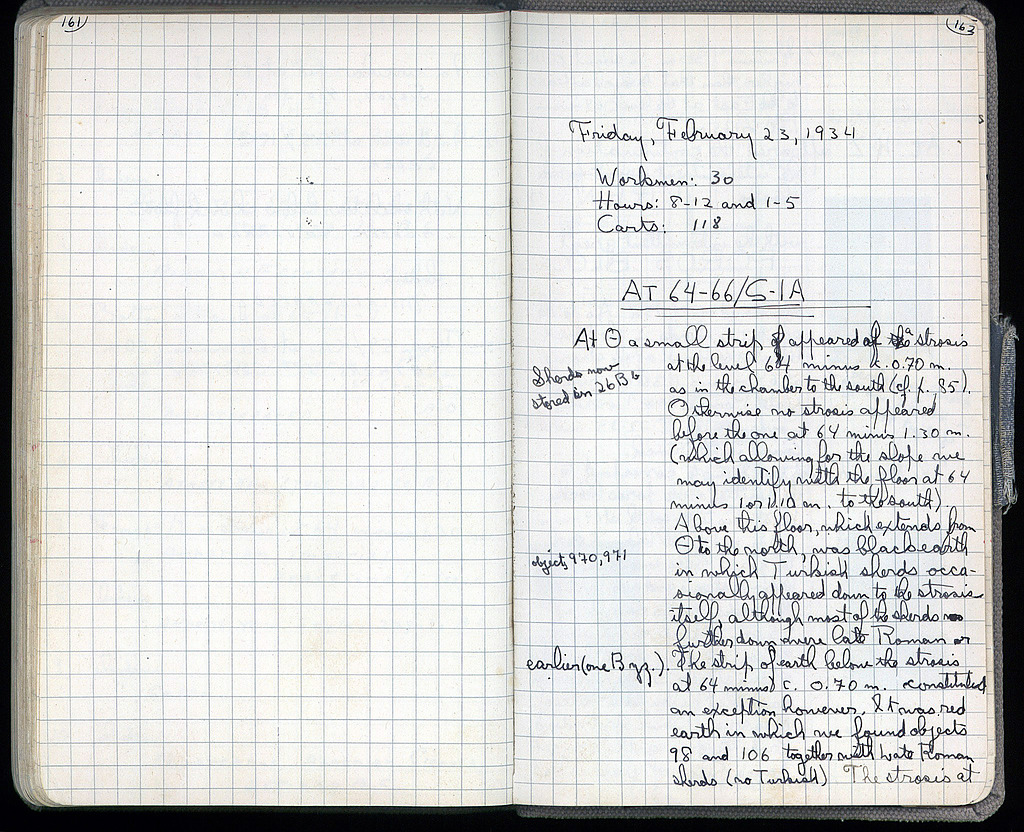 161
163
Friday, February 23, 1934
Workmen: 30
Hours: 8-12 and 1-5
Carts: 118
AT 64-66/S-1A
At Θ a small strip appeared of a strosis
at the level 64 minus c. 0.70 m.
Sherds now
stored in 26B6
as in the chamber to the south (cf. p. 85).
Otherwise no strosis appeared
before the one at 64 minus 1.30 m.
(which allowing for the slope we
may identify with the floor at 64
minus 1 or 1.10 m. to the south)
Above this floor, which extends from
Θ to the north, was black earth
objects 970, 971
in which Turkish sherds occa-
sionally appeared down to the strosis
itself, although most of the sherds
further down were late Roman or
earlier (one Byz.). The strip of earth below the strosis
at 64 minus c. 0.70 m. constituted
an exception however. It was red
earth in which we found objects
98 and 106 together with Late Roman
sherds (no Turkish) The strosis at